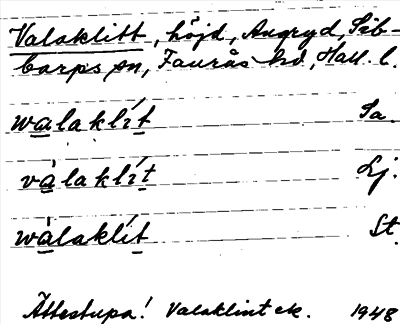 Valaklitt, höjd, Asige sn, Sib-
barps sn, Faurås hd, Hall. l.
walaklít Sa.
vàlaklít Lj.
wàlaklít St.
Ättestupa! Valaklint ek. 1948